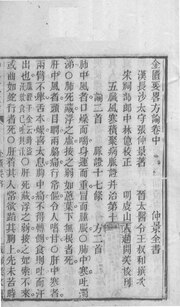 金匱要略方論卷中　仲景全書
漢長沙太守張仲景著　晉太醫令王叔和撰次
宋尚書司封郎中林億校正　明虞山人趙開美校刻
五臟風寒積聚病脈證并治第十一
論二首　脈證十七條　方二首
肺中風者口燥而喘身運而重冒而腫脹○肺中寒吐濁
涕○肺死臟浮之虛按之弱如葱葉下無根者死
肝中風者頭目瞤兩脇痛行常傴令人嗜甘○肝中寒者
兩臂不舉舌本燥喜太息胸中痛不得轉側食則吐而汗
出也
○肝死臟浮之弱按之如索不來
或曲如蛇行者死○肝著其人常欲蹈其胸上先未苦